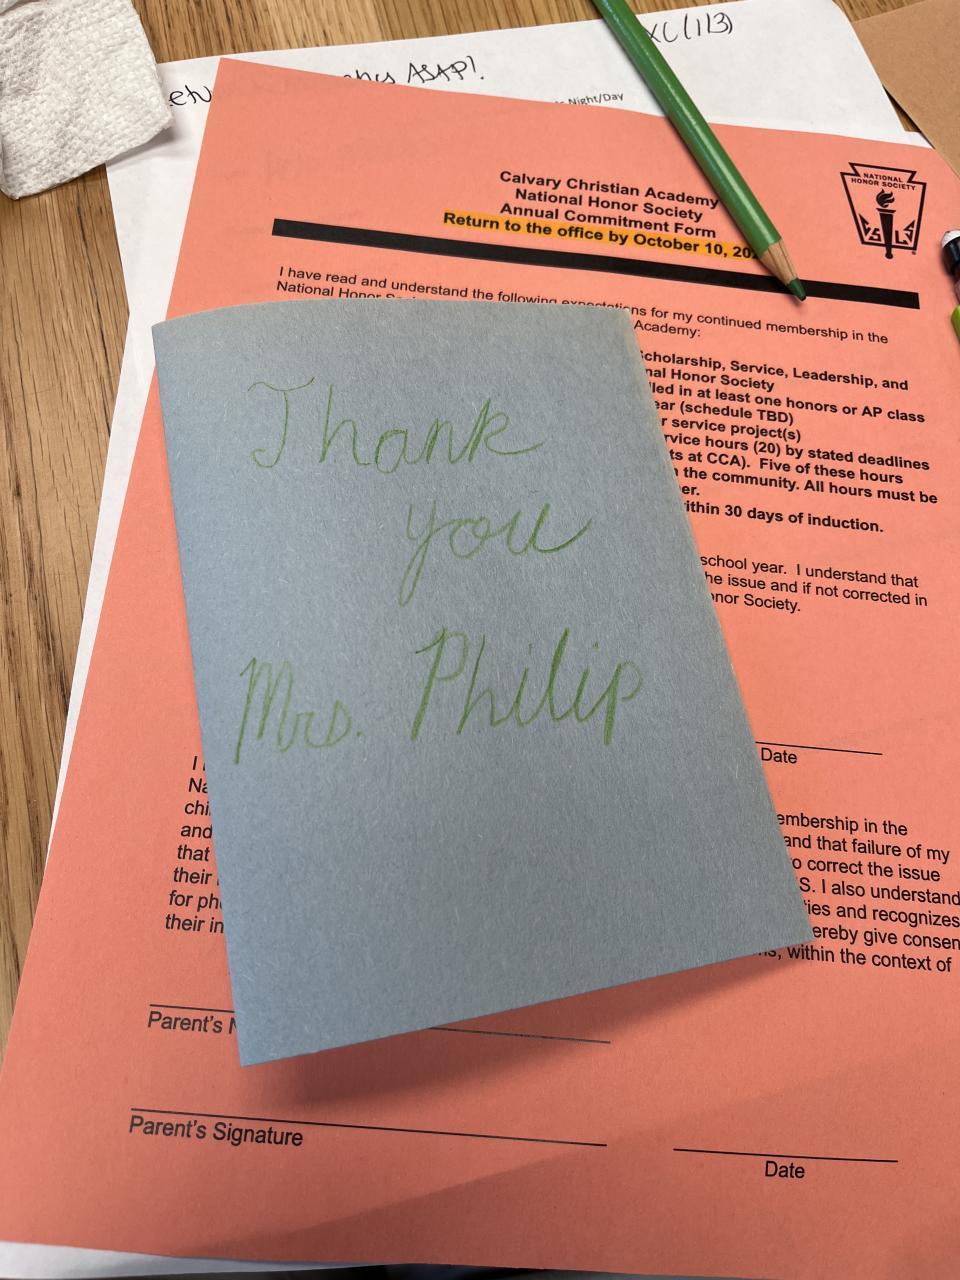 ASAP!
XC(113)
Night/Day
Calvary Christian Academy
National Honor Society
Annual Commitment Form
Return to the office by October 10, 20
NATIONAL
HONOR SOCIETY
I have read and understand the following expectations for my continued membership in the
National Honor Academy:
Scholarship, Service, Leadership, and
nal Honor Society
lled in at least one honors or AP class
ear (schedule TBD)
r service project(s)
rvice hours (20) by stated deadlines
ts at CCA). Five of these hours
the community. All hours must be
er.
ithin 30 days of induction.
school year. I understand that
he issue and if not corrected in
onor Society.
Thank
you
Mrs. Philip
Date
I
Na
chi
and
that
their
for ph
their in
embership in the
and that failure of my
o correct the issue
S. I also understand
ties and recognizes
ereby give consen
, within the context of
Parent's N
Parent's Signature
Date